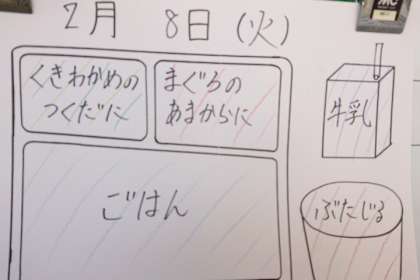 2月 8日 (火)
くきわかめの
つくだに
まぐろの
あまからに
牛乳
ごはん
ぶたじる